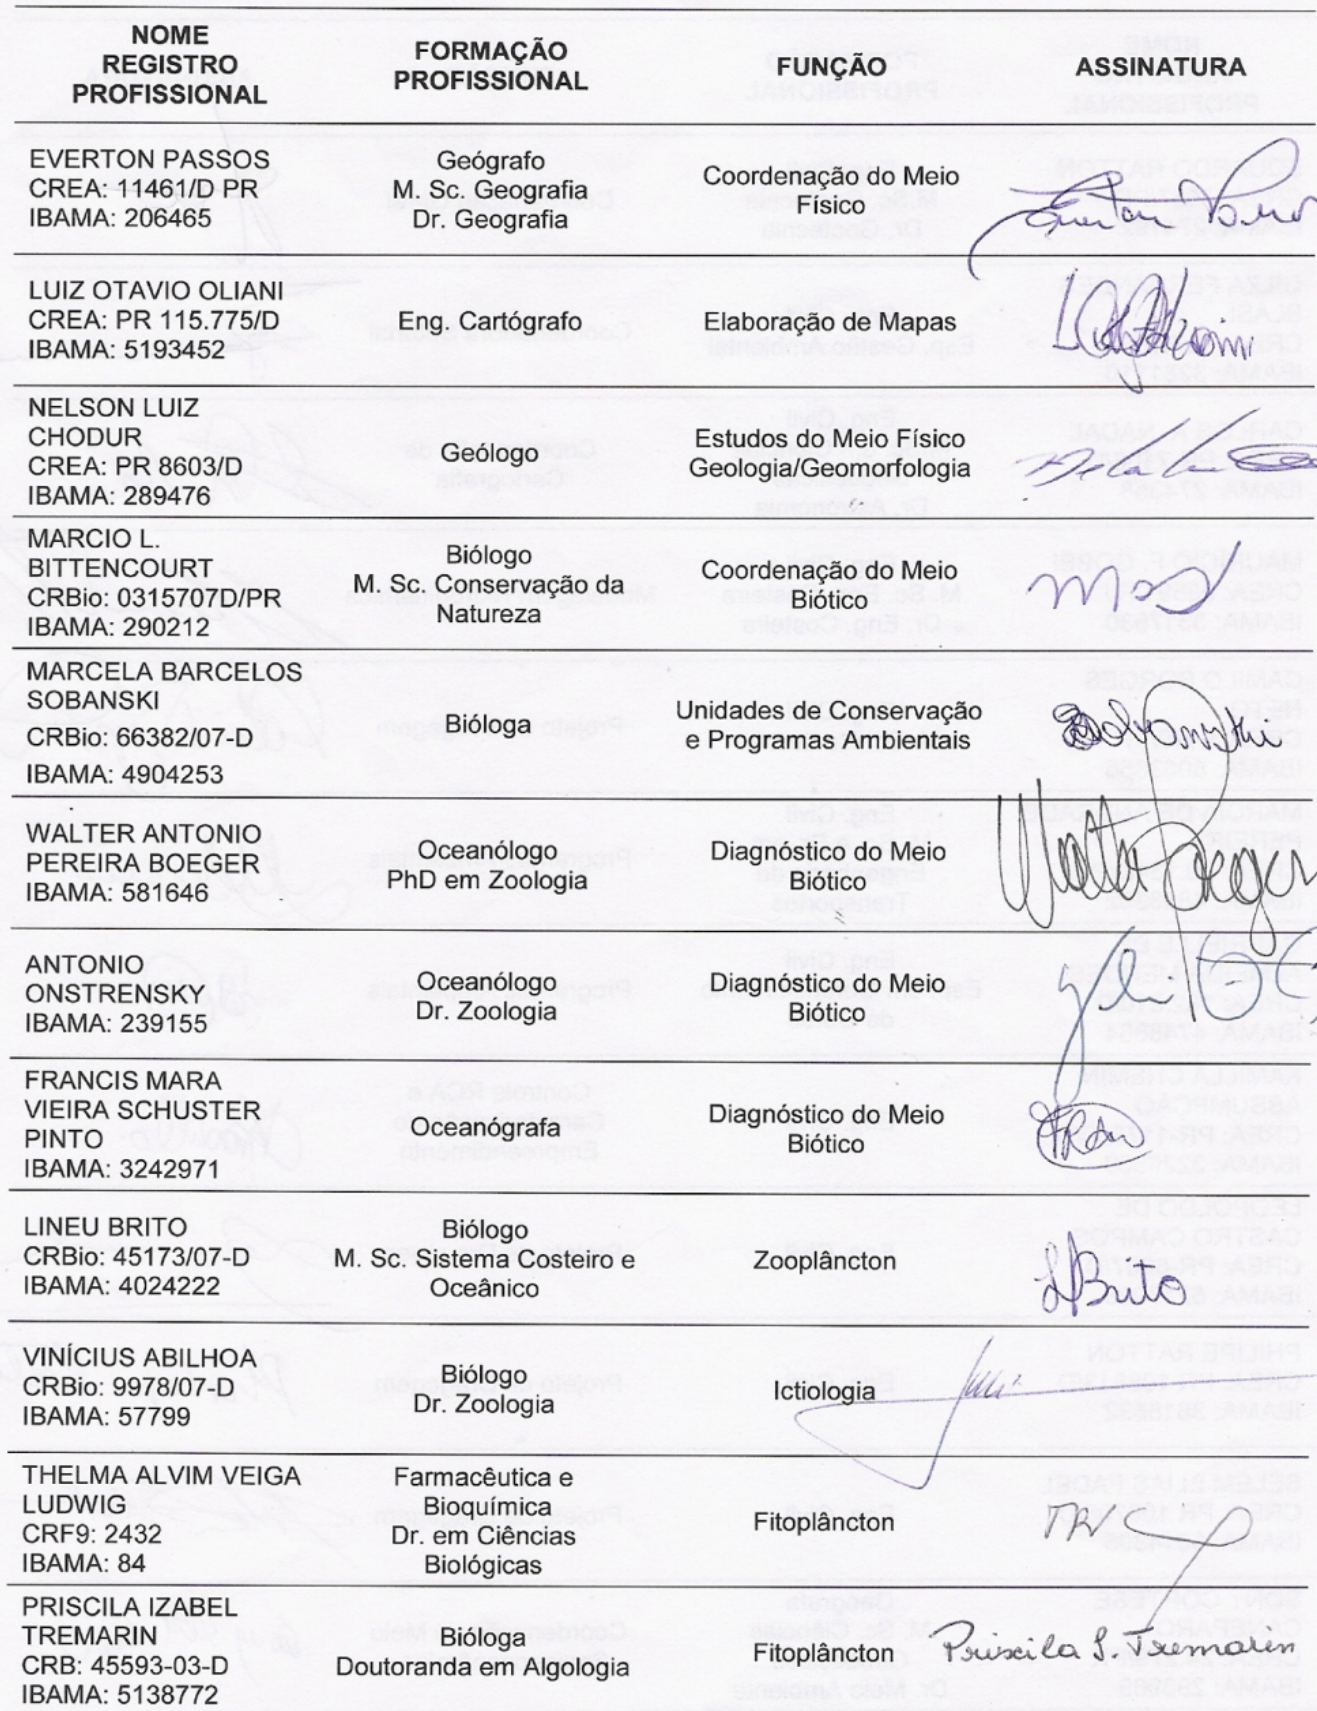 NOME
REGISTRO
PROFISSIONAL
FORMAÇÃO
PROFISSIONAL
FUNÇÃO
ASSINATURA
EVERTON PASSOS
CREA:11461/D PR
IBAMA: 206465
Geógrafo
M. Sc. Geografia
Dr. Geografia
Coordenação do Meio
Físico
LUIZ OTAVIO OLIANI
CREA: PR 115.775/D
IBAMA: 5193452
Eng. Cartógrafo
Elaboração de Mapas
NELSON LUIZ
CHODUR
CREA: PR 8603/D
IBAMA: 289476
Geólogo
Estudos do Meio Físico
Geologia/Geomorfologia
MARCIO L.
BITTENCOURT
CRBio: 0315707D/PR
IBAMA: 290212
Biólogo
M. Sc. Conservação da
Natureza
Coordenação do Meio
Biótico
MARCELA BARCELOS
SOBANSKI
CRBio: 66382/07-D
IBAMA: 4904253
Bióloga
Unidades de Conservação
e Programas Ambientais
WALTER ANTONIO
PEREIRA BOEGER
IBAMA: 581646
Oceanólogo
PhD em Zoologia
Diagnóstico do Meio
Biótico
Walter Boeger
ANTONIO
ONSTRENSKY
IBAMA: 239155
Oceanólogo
Dr. Zoologia
Diagnóstico do Meio
Biótico
FRANCIS MARA
VIEIRA SCHUSTER
PINTO
IBAMA: 3242971
Oceanógrafa
Diagnóstico do Meio
Biótico
LINEU BRITO
CRBio: 45173/07-D
IBAMA: 4024222
Biólogo
M. Sc. Sistema Costeiro e
Oceânico
Zooplâncton
LBrito
VINÍCIUS ABILHOA
CRBio: 9978/07-D
IBAMA: 57799
Biólogo
Dr. Zoologia
Ictiologia
THELMA ALVIM VEIGA
LUDWIG
CRF9: 2432
IBAMA: 84
Farmacêutica e
Bioquímica
Dr. em Ciências
Biológicas
Fitoplâncton
PRISCILA IZABEL
TREMARIN
CRB: 45593-03-D
IBAMA: 5138772
Bióloga
Doutoranda em Algologia
Fitoplâncton
Priscila I. Tremarin